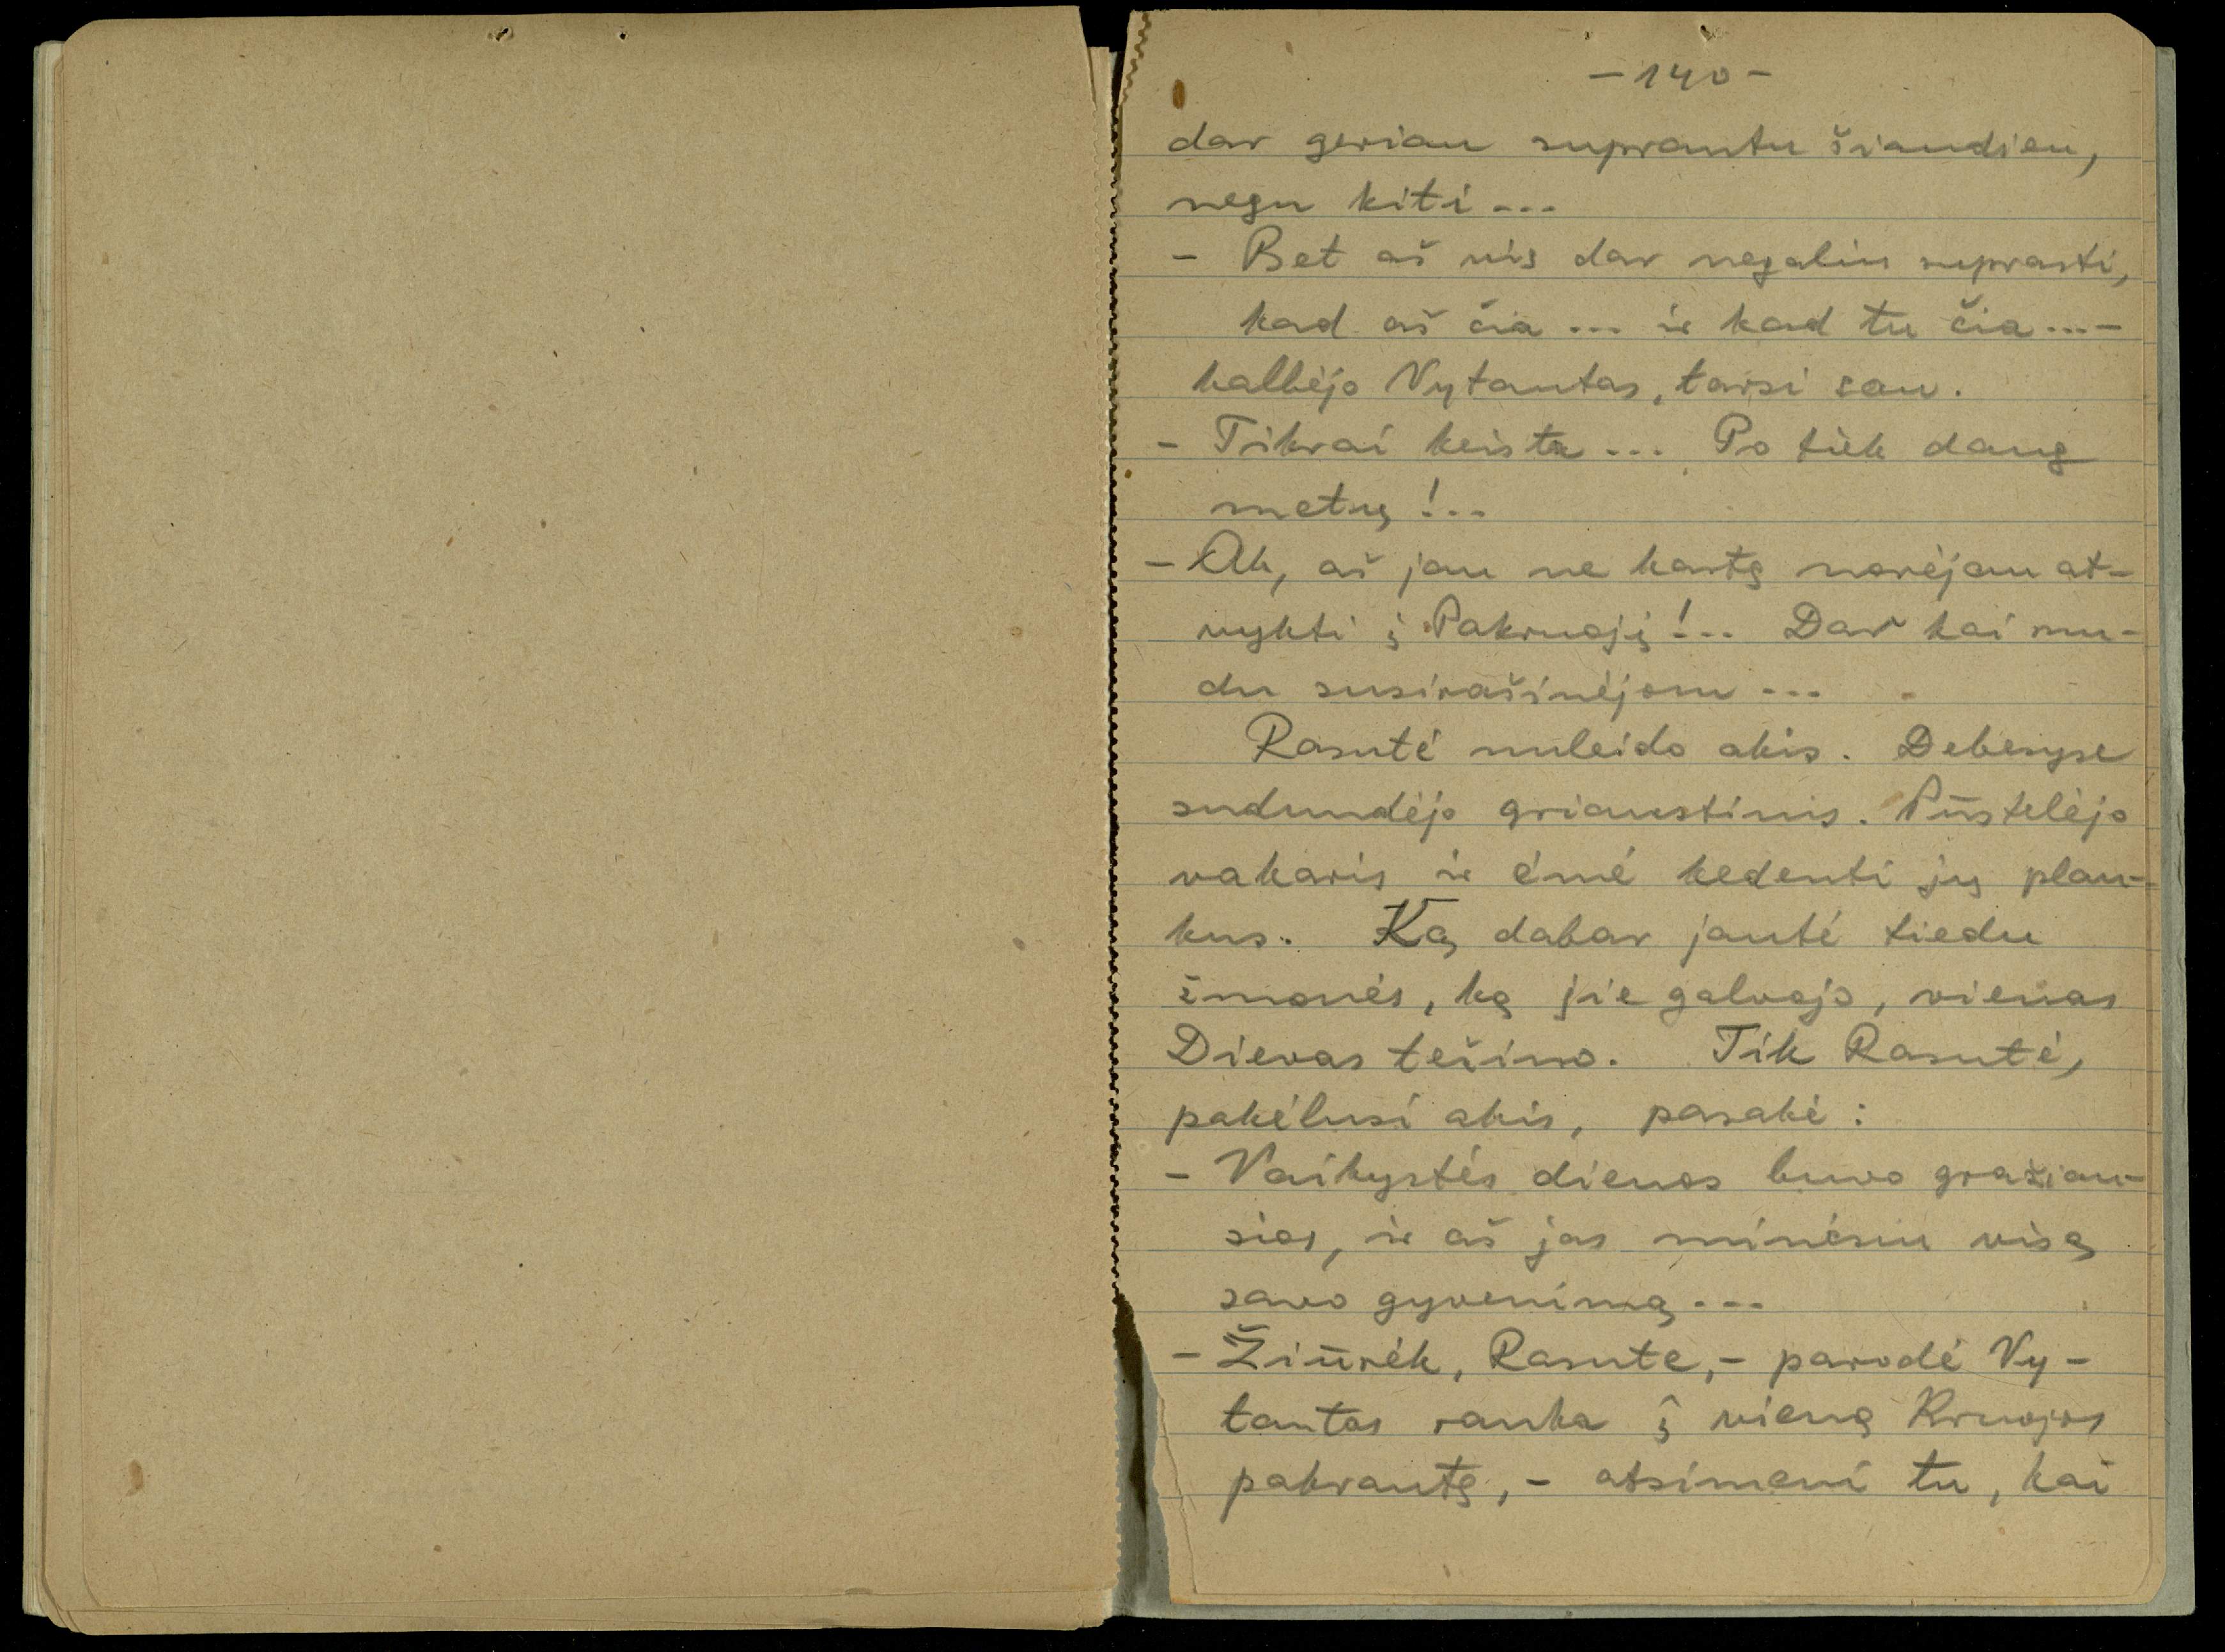 - 140 -
dar geriau suprantu šiandien,
negu kiti...
- Bet aš vis dar negaliu suprasti,
kad aš čia... ir kad tu čia... -
kalbėjo Vytautas, tarsi sau.
- Tikrai keista... Po tiek daug
metų!..
- Ak, aš jau ne kartą norėjau at-
vykti į Pakruojį!.. Dar kai mu-
du susirašinėjom...
Rasutė nuleido akis. Debesyse
sudundėjo griaustinis. Pūstelėjo
vakaris ir ėmė kedenti jų plau-
kus. Ką dabar jautė tiedu
žmonės, ką jie galvojo, vienas
Dievas težino. Tik Rasutė,
pakėlusi akis, pasakė:
- Vaikystės dienos buvo gražiau-
sios, ir aš jas minėsiu visą
savo gyvenimą...
- Žiūrėk, Rasute, - parodė Vy-
tautas ranka į vieną Kruojos
pakrantę, - atsimeni tu, kai